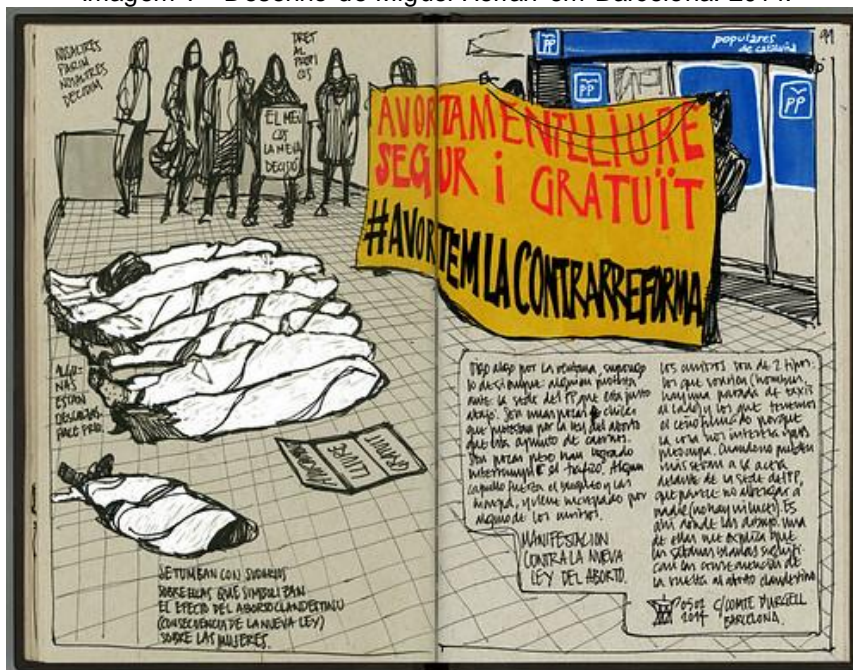 NOSALTRES
PARIM
NOSALTRES
DECIDIM
DRET
AL PROPI
COS
EL MEU
COS
LA MEVA
DECISIÓ
PP
populares
de cataluña
99
PP
PP
AVORTAMENT LLIURE
SEGUR i GRATUÏT
#AVORTEM LA CONTRARREFORMA
ALGU-
NAS
ESTÁN
DESCALZAS.
HACE FRÍO.
LLIURE
SE TUMBAN CON SUDARIOS
SOBRE ELLAS QUE SIMBOLIZAN
EL EFECTO DEL ABORTO CLANDESTINO
(CONSECUENCIA DE LA NUEVA LEY)
SOBRE LAS MUJERES.
Oigo algo por la ventana, supongo
lo de siempre: alguien protesta
ante la sede del PP que está justo
abajo. Son unas pocas chicas
que protestan por la ley del aborto
que está a punto de
Son pocas pero han logrado
interrumpir el tráfico. Algún
capullo fuerza el
y viene increpado por
alguno de los
MANIFESTACION
CONTRA LA NUEVA
LEY DEL ABORTO.
Los son de 2 tipos:
los que sonríen (hombres,
hay una parada de taxis
al lado) y los que tenemos
el ceño fruncido porque
la cosa nos interesa y nos
preocupa. Cuando no pueden
más se van a la acera
delante de la sede del PP,
que parece no albergar a
nadie (no hay ni luces). Es
ahí donde las dibujo. Una
de ellas me explica que
las sábanas blancas signifi-
can las consecuencias de
la vuelta al aborto clandestino
0502
2014
C/COMTE D'URGELL
BARCELONA.